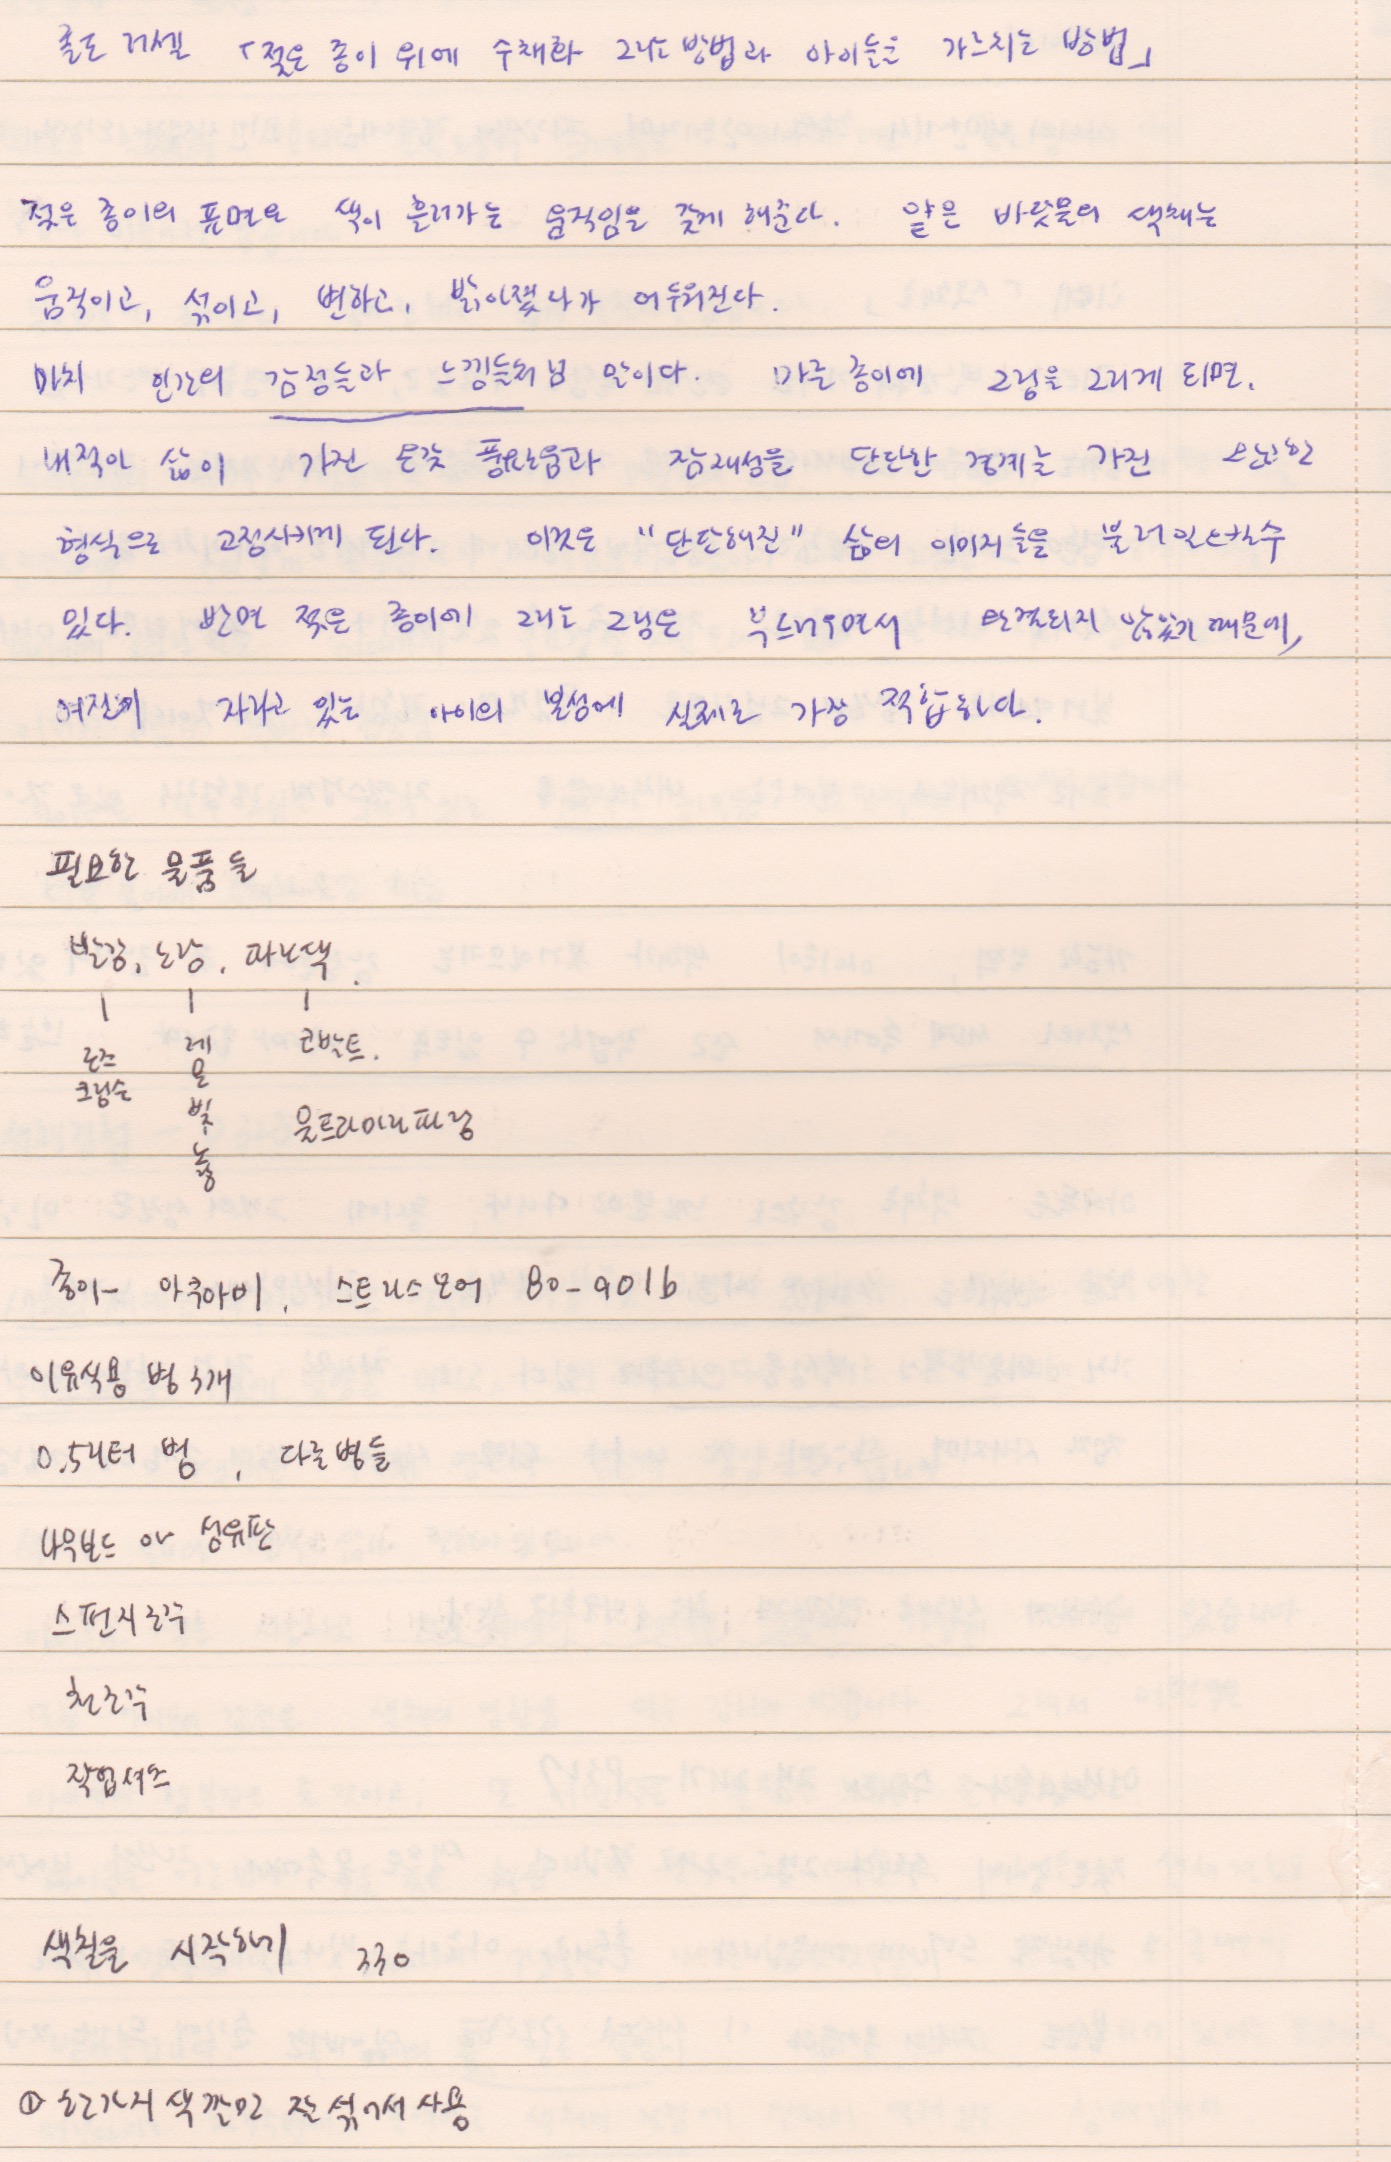 골도 러셀 「젖은 종이 위에 수채화 그리는 방법과 아이들을 가르치는 방법」
젖은 종이의 표면은 색이 흘러가는 움직임을 갖게 해준다. 얕은 바닷물의 색채는
움직이고, 섞이고, 변하고, 밝아졌다가 어두워진다.
마치 인간의 감정들과 느낌들처럼 말이다. 마른 종이에 그림을 그리게 되면,
내적인 삶이 가진 온갖 풍요로움과 잠재성을 단단한 경계를 가진
형식으로 고정시키게 된다. 이것은 "단단해진" 삶의 이미지들을 불러일으킬 수
있다. 반면 젖은 종이에 그리는 그림은 부드러우면서 완결되지 않았기 때문에,
여전히 자라고 있는 아이의 본성에 실제로 가장 적합하다.
필요한 물품들
빨강, 노랑, 파란색.
로즈 크림슨
레몬빛 노랑
코발트.
울트라마린 파랑
종이- 아쿠아비, 스트라스모어 80-90lb
이유식용 병 3개
0.5리터 병, 다른 병들
나무보드 or 섬유판
스펀지 조각
천조각
작업셔츠
색칠을 시작하기 330
① 한가지 색깔만 잘 섞어서 사용